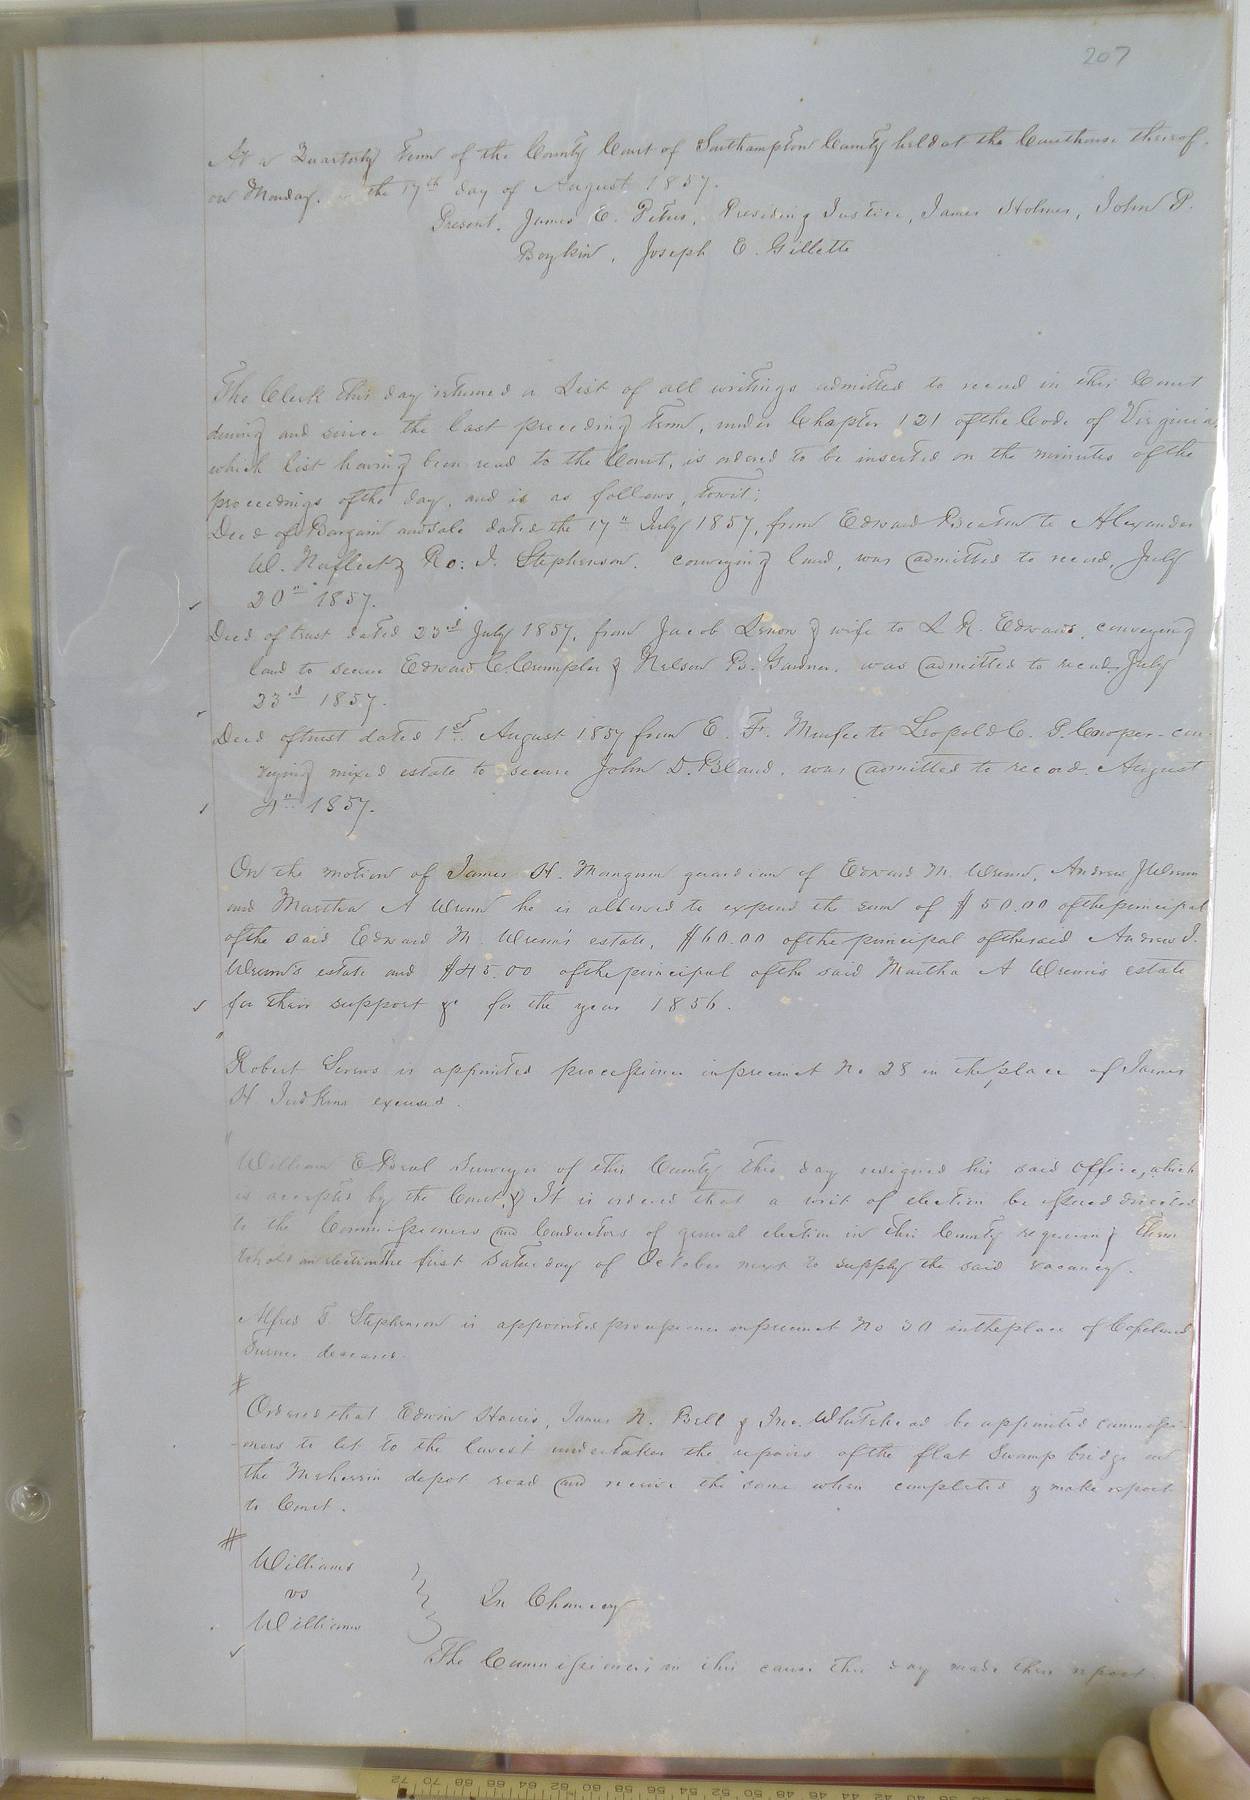 207
At a Quarterly Term of the County Court of Southampton County held at the Courthouse thereof.
on Monday, the 17th day of August 1857.
Present, James E. Peters, Presiding Justice, James Holmes, John P.
Boykin, Joseph E. Gillette
The Clerk this day returned a List of all writings admitted to record in this Court
during and since the last preceding term, under Chapter 121 of the Code of Virginia,
which list having been read to the Court, is ordered to be inserted on the minutes of the
proceedings of the day, and is as follows, towit:
Deed of Bargain and sale dated the 17th July 1857, from Edward Beaton to Alexander
W. Norfleet & Ro: I. Stephenson. conveying land, was admitted to record, July
20th 1857.
Deed of trust dated 23rd July 1857, from Jacob Lenow & wife to L R. Edwards, conveying
land to secure Edward C. Crumpler & Nelson B. Gardner. was admitted to record, July
23rd 1857.
Deed of trust dated 1st August 1857 from E. F. to Leopold C. P. Cowper - con-
veying mixed estate to secure John D. Bland. was admitted to record. August
4th 1857.
On the motion of James H. Mangum guardian of Edward M. Wrenn, Andrew J Wrenn
and Martha A Wrenn he is allowed to expend the sum of $50.00 of the principal
of the said Edward M. Wrenn's estate, $60.00 of the principal of the said Andrew J.
Wrenn's estate and $45.00 of the principal of the said Martha A Wrenn's estate
for their support &c for the year 1856.
Robert is appointed processioner in precinct No 28 in the place of James
H Judkins excused.
William E Beal Surveyor of this County this day resigned his said Office, which
is accepted by the Court, & It is ordered that a writ of election be issued directed
to the Commissioners and Conductors of general election in this County requiring them
to hold an election the first Saturday of October next to supply the said vacancy.
Alfred T. Stephenson is appointed processioner in precinct No 30 in the place of Copeland
Turner deceased.
Ordered that Edwin Harris, James N. Bell & Jno. Whitehead be appointed commissi-
oners to let to the lowest undertaker the repairs of the flat Swamp bridge on
the Meherrin depot road and receive the same when completed & make report
to Court.
Williams
vs
Williams
In Chancery
The Commissioners in this cause this day made their report